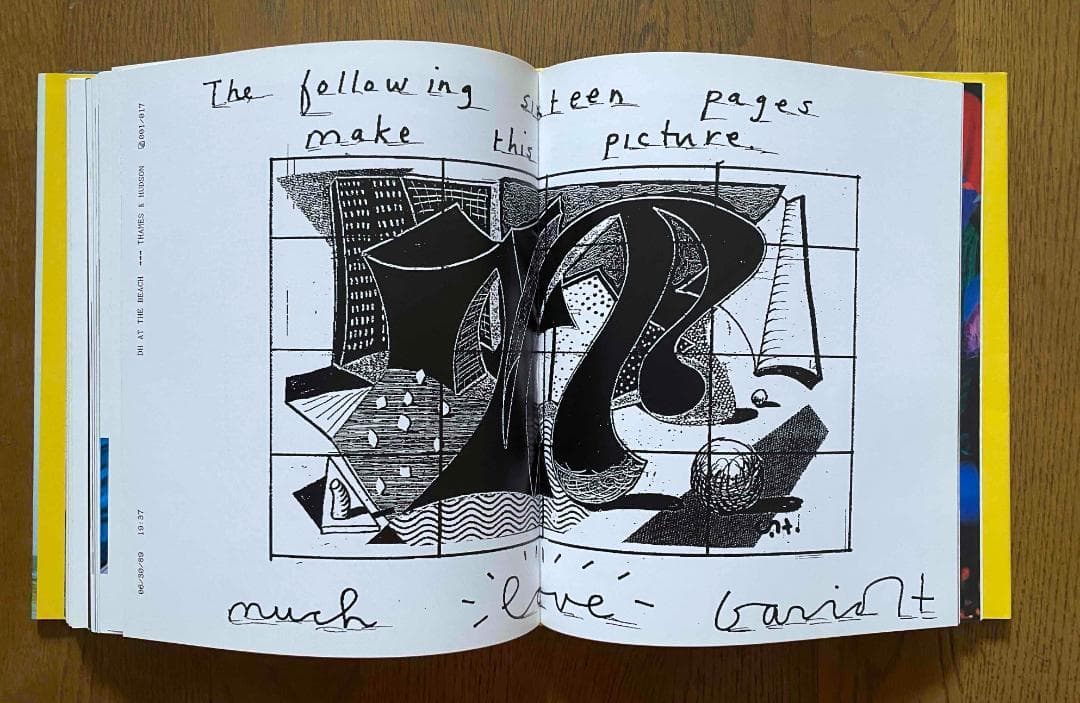 The following sixteen pages
make this picture.
much love David H
06/30/89 19:37 DH AT THE BEACH --- THAMES & HUDSON 001/017